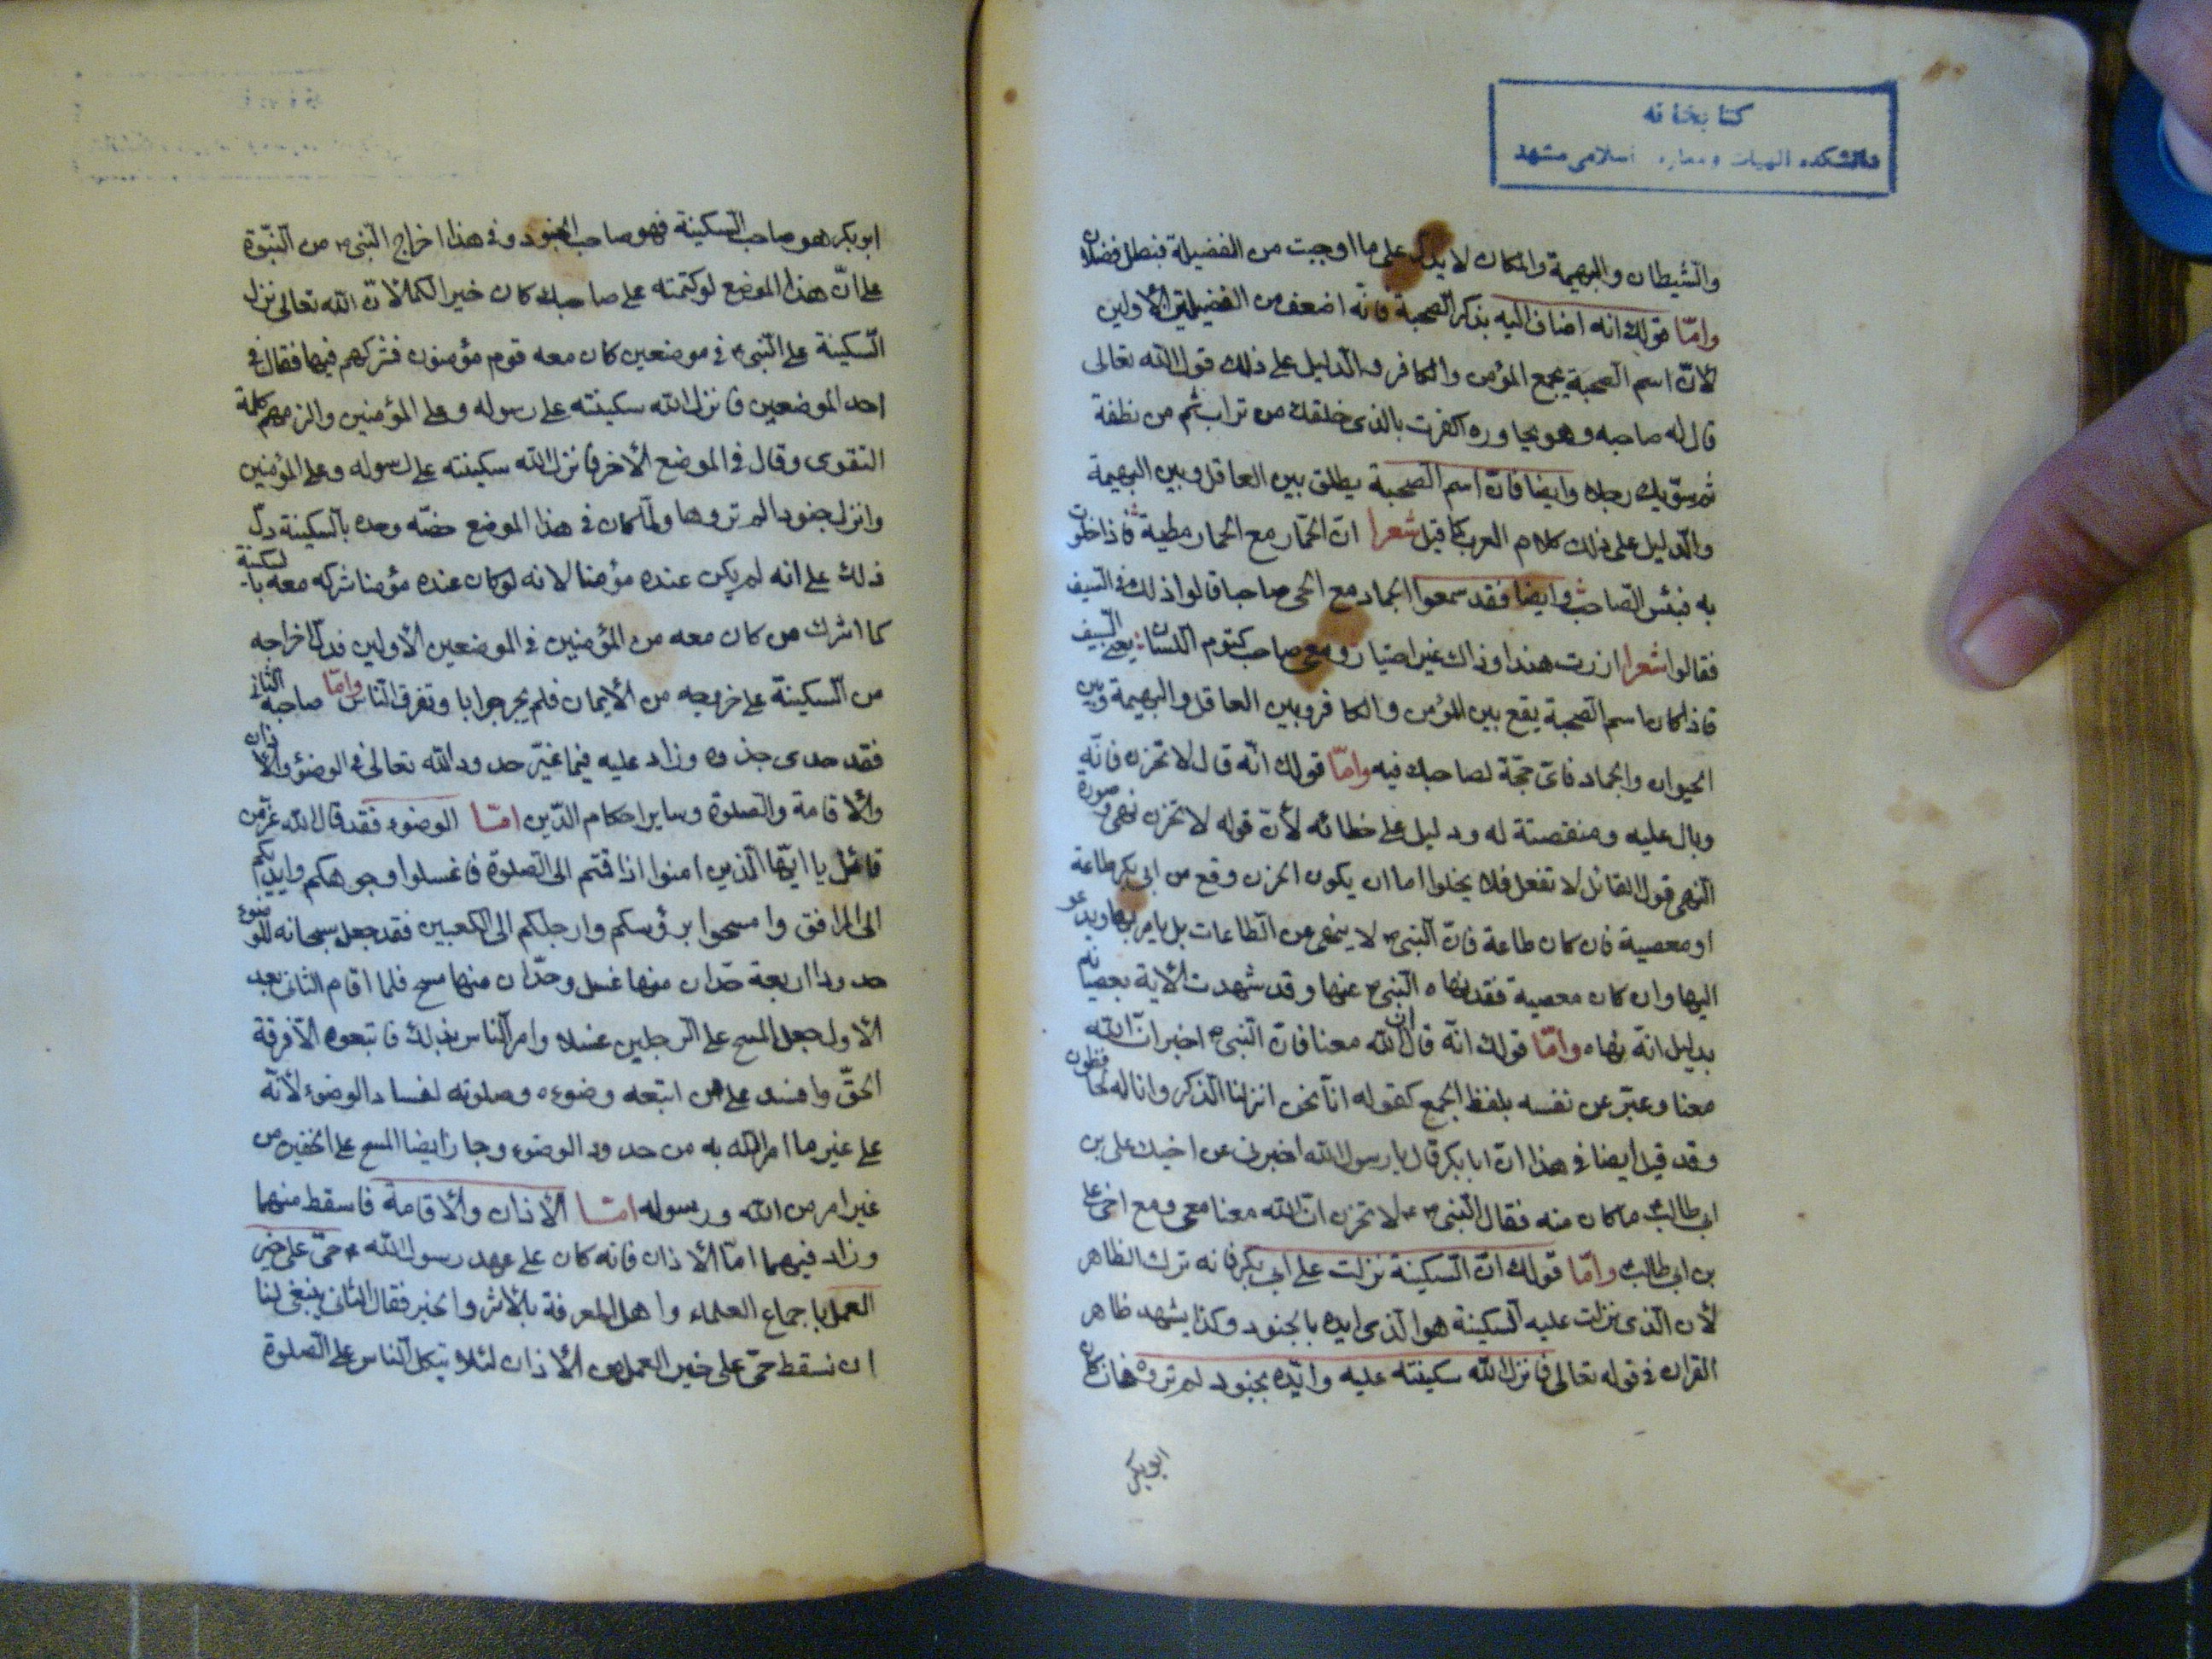 كتابخانه
دانشكده الهيات و معارف اسلامى مشهد
والشيطان والبهيمة والمكان لا يدل على ما اوجبت من الفضيلة فبطل فضلان
وامّا قولك انه اضاف اليه بذكر الصحبة فانّه اضعف من الفضيلتين الأولين
لأنّ اسم الصحبة يجمع المؤمن والكافر والدليل على ذلك قول الله تعالى
قال له صاحبه وهو يحاوره اكفرت بالذى خلقك من تراب ثم من نطفة
ثم سوّيك رجلا وايضا فانّ اسم الصحبة يطلق بين العاقل وبين البهيمة
والدليل على ذلك كلام العرب كما قيل شعرا انّ الحمار مع الحمار مطية فاذا خلوت
به فبئس الصاحب وايضا فقد سمعوا الجماد مع الحى صاحبا قالوا ذلك فى السيف
فقالوا شعرا ازرت هندا وذاك غير اختيار ومعى صاحب كتوم اللسان يعنى السيف
فاذا كان اسم الصحبة يقع بين المؤمن والكافر وبين العاقل والبهيمة وبين
الحيوان والجماد فاىّ حجّة لصاحبك فيه وامّا قولك انّه قال لا تحزن فانّه
وبال عليه ومنقصتة له ودليل على خطائه لأنّ قوله لا تحزن نهى وصورة
النهى قول القائل لا تفعل فلا يخلوا اما ان يكون الحزن وقع من ابى بكر طاعة
او معصية فان كان طاعة فانّ النبى ص لا ينهى عن الطاعات بل يامر بها ويدعو
اليها وان كان معصية فقد نهاه النبى ص عنها وقد شهدت الآية بعصيانه
بدليل انّه نهاه وامّا قولك انّه قال انّ الله معنا فانّ النبى ص اخبر انّ الله
معنا وعبّر عن نفسه بلفظ الجمع كقوله انّا نحن انزلنا الذكر وانا له لحافظون
وقد قيل ايضا فى هذا انّ ابا بكر قال يا رسول الله اخبرنى عن اخيك على بن
ابى طالب ما كان منه فقال النبى ص لا تحزن انّ الله معنا معى ومع اخى على
بن ابى طالب وامّا قولك انّ السكينة نزلت على ابى بكر فانه ترك الظاهر
لأن الذى نزلت عليه السكينة هو الذى ايده بالجنود وكذا يشهد ظاهر
القران فى قوله تعالى فانزل الله سكينته عليه وايّده بجنود لم تروها فان كان
ابو بكر
ابو بكر هو صاحب السكينة فهو صاحب الجنود وفى هذا اخراج النبى ص من النبّوة
على انّ هذا الموضع لو كتمته على صاحبك كان خيرا لك لانّ الله تعالى نزل
السكينة على النبى ص فى موضعين كان معه قوم مؤمنون فشركهم فيها فقال فى
احد الموضعين فانزل الله سكينته على رسوله وعلى المؤمنين والزمهم كلمة
التقوى وقال فى الموضع الأخر فانزل الله سكينته على رسوله وعلى المؤمنين
وانزل جنودا لم تروها ولمّا كان فى هذا الموضع خصّه وحده بالسكينة دلّ
ذلك على انه لم يكن عنده مؤمنا لانه لو كان عنده مؤمنا شركه معه بالسكينة
كما اشرك من كان معه من المؤمنين فى الموضعين الأولين فدلّ اخراجه
من السكينة على خروجه من الأيمان فلم يحر جوابا وتفرق الناس وامّا صاحبه الثانى
فقد حدى حذوه وزاد عليه فيما غيّر حدود الله تعالى فى الوضؤ والأذان
والأقامة والصلوة وساير احكام الدّين امّا الوضوء فقد قال الله عزّ من
قائل يا ايّها الذين امنوا اذا قمتم الى الصلوة فاغسلوا وجوهكم وايديكم
الى المرافق وامسحوا برؤسكم وارجلكم الى الكعبين فقد جعل سبحانه للوضوء
حدودا اربعة حدّان منها غسل وحدّان منها مسح فلما اقام الثانى بعد
الأول جعل المسح على الرجلين غسلا وامر الناس بذلك فاتبعوه الّا فرقة
الحقّ وافسد على من اتبعه وضوءه وصلوته لفساد الوضوء لأنّه
على غير ما امر الله به من حدود الوضوء وجاز ايضا المسح على الخفين من
غير امر من الله ورسوله امّا الأذان والأقامة فاسقط منهما
وزاد فيهما امّا الأذان فانه كان على عهد رسول الله ص حىّ على خير
العمل باجماع العلماء واهل المعرفة بالأثر والخبر فقال الثانى ينبغى لنا
ان نسقط حىّ على خير العمل من الأذان لئلا يتكل الناس على الصلوة